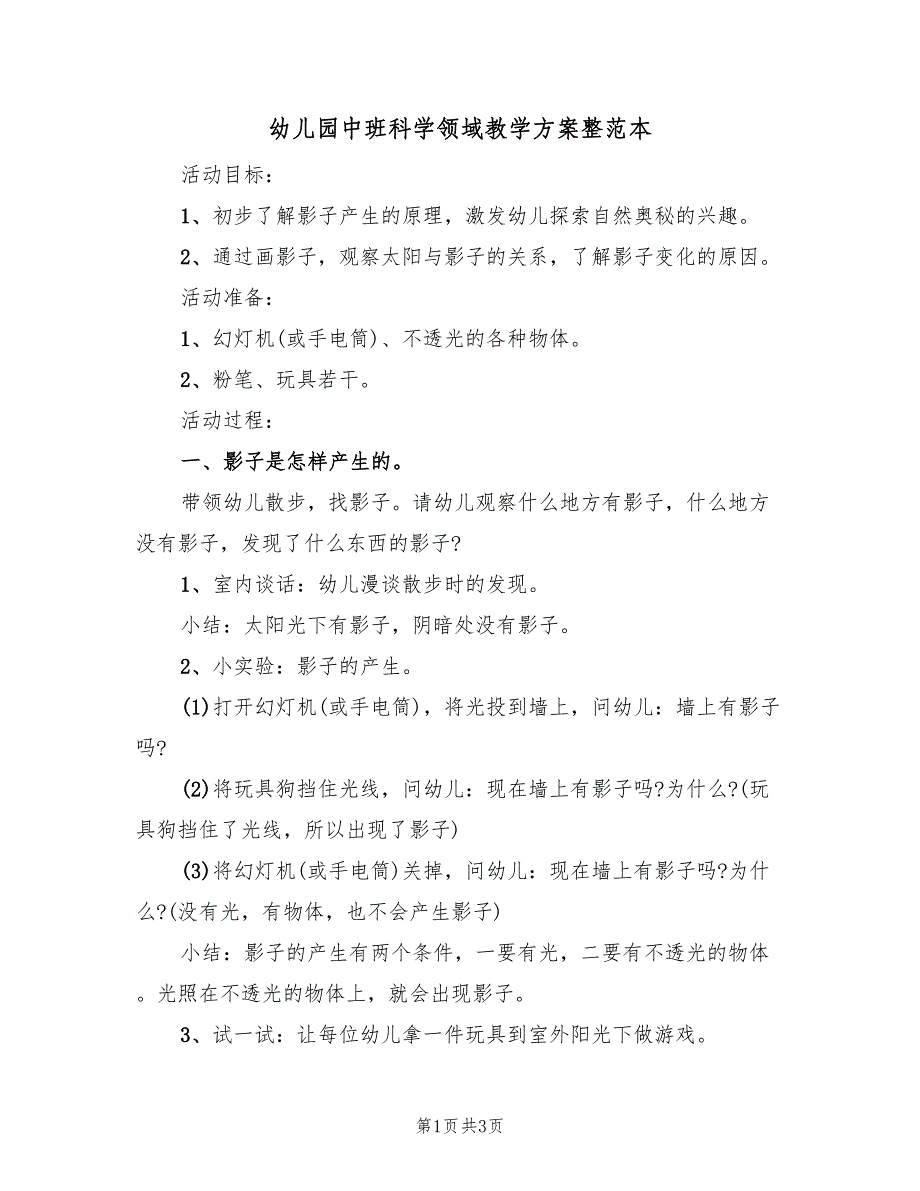 幼儿园中班科学领域教学方案整范本
活动目标：
1、初步了解影子产生的原理，激发幼儿探索自然奥秘的兴趣。
2、通过画影子，观察太阳与影子的关系，了解影子变化的原因。
活动准备：
1、幻灯机(或手电筒)、不透光的各种物体。
2、粉笔、玩具若干。
活动过程：
一、影子是怎样产生的。
带领幼儿散步，找影子。请幼儿观察什么地方有影子，什么地方
没有影子，发现了什么东西的影子?
1、室内谈话：幼儿漫谈散步时的发现。
小结：太阳光下有影子，阴暗处没有影子。
2、小实验：影子的产生。
(1)打开幻灯机(或手电筒)，将光投到墙上，问幼儿：墙上有影子
吗?
(2)将玩具狗挡住光线，问幼儿：现在墙上有影子吗?为什么?(玩
具狗挡住了光线，所以出现了影子)
(3)将幻灯机(或手电筒)关掉，问幼儿：现在墙上有影子吗?为什
么?(没有光，有物体，也不会产生影子)
小结：影子的产生有两个条件，一要有光，二要有不透光的物体
。光照在不透光的物体上，就会出现影子。
3、试一试：让每位幼儿拿一件玩具到室外阳光下做游戏。
第1页共3页